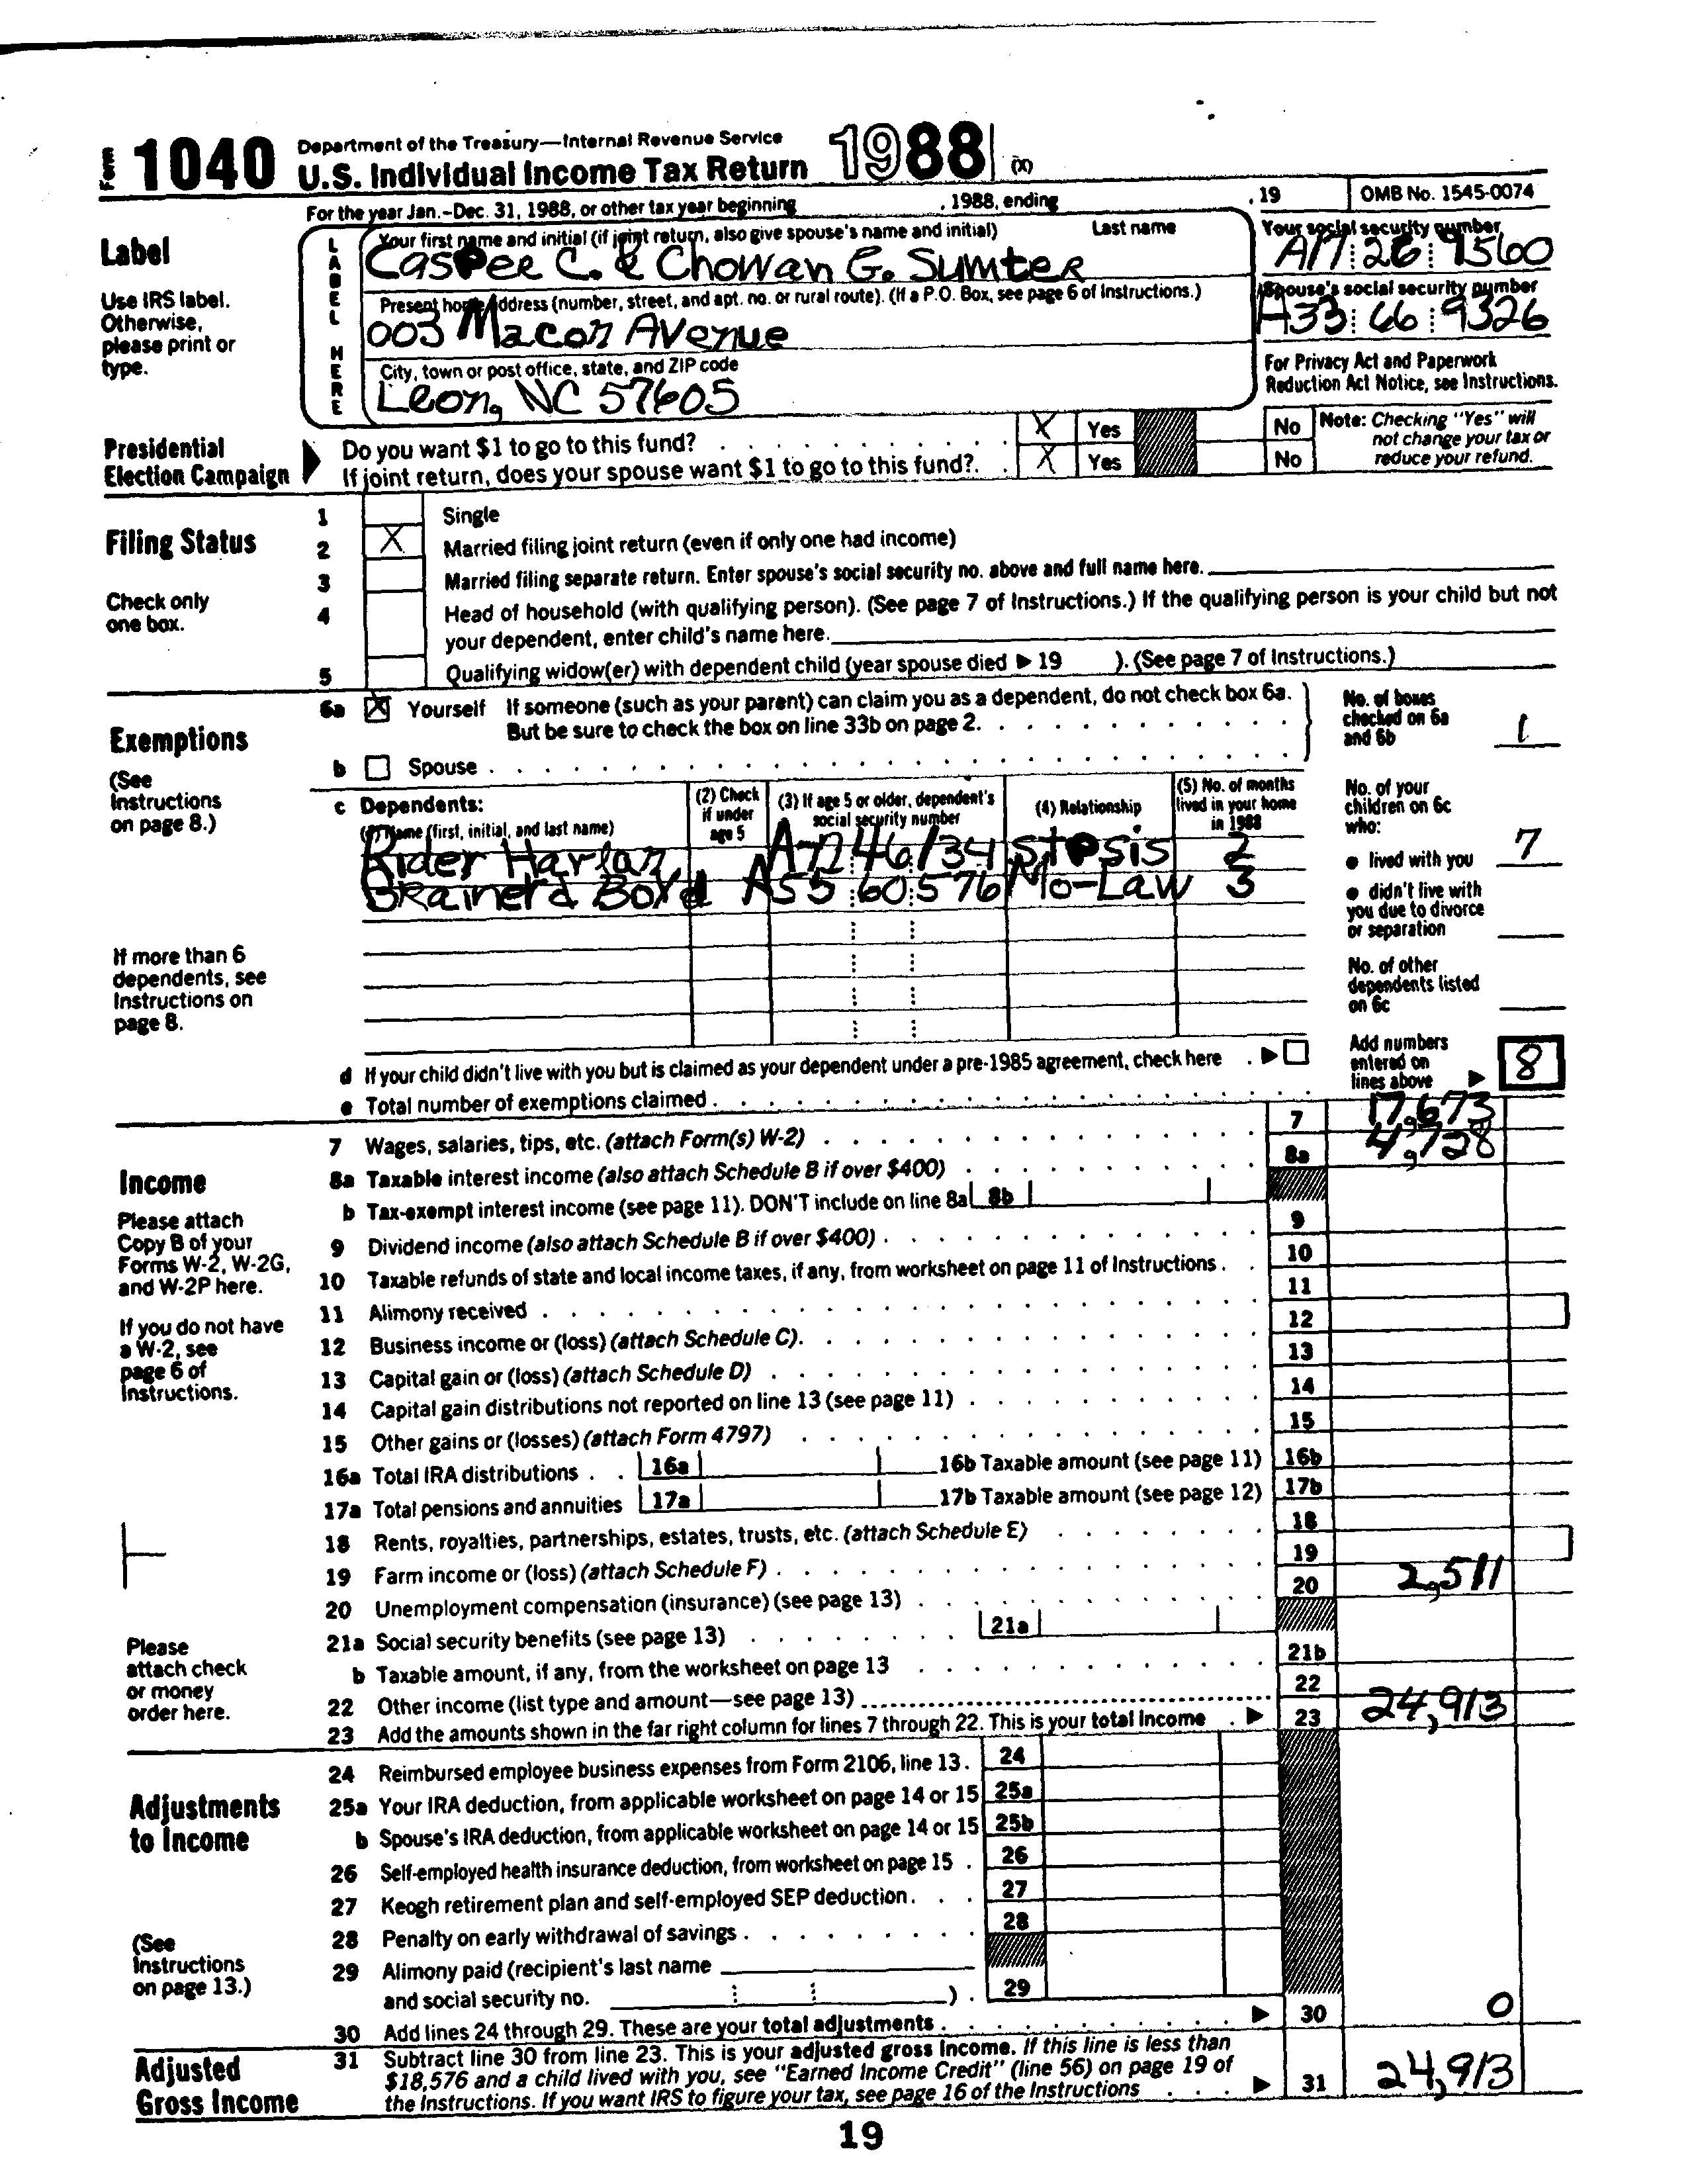 Form 1040 Department of the Treasury—Internal Revenue Service
U.S. Individual Income Tax Return 1988 (X)
For the year Jan.-Dec. 31, 1988, or other tax year beginning , 1988, ending , 19 OMB No. 1545-0074
Label
Use IRS label.
Otherwise,
please print or
type.
LABEL HERE
Your first name and initial (if joint return, also give spouse's name and initial) Last name
Casper C. & Chowan G. Sumter
Your social security number
A17 26 9560
Present home address (number, street, and apt. no. or rural route). (If a P.O. Box, see page 6 of Instructions.)
003 Macon Avenue
Spouse's social security number
A33 66 9326
City, town or post office, state, and ZIP code
Leon, NC 57605
For Privacy Act and Paperwork
Reduction Act Notice, see Instructions.
Presidential
Election Campaign
Do you want $1 to go to this fund? X Yes No
If joint return, does your spouse want $1 to go to this fund? X Yes No
Note: Checking "Yes" will
not change your tax or
reduce your refund.
Filing Status
Check only
one box.
1 Single
2 X Married filing joint return (even if only one had income)
3 Married filing separate return. Enter spouse's social security no. above and full name here.
4 Head of household (with qualifying person). (See page 7 of Instructions.) If the qualifying person is your child but not
your dependent, enter child's name here.
5 Qualifying widow(er) with dependent child (year spouse died ▶ 19 ). (See page 7 of Instructions.)
Exemptions
(See
Instructions
on page 8.)
6a X Yourself If someone (such as your parent) can claim you as a dependent, do not check box 6a.
But be sure to check the box on line 33b on page 2.
b Spouse
No. of boxes
checked on 6a
and 6b 1
c Dependents:
(1) Name (first, initial, and last name)
(2) Check
if under
age 5
(3) If age 5 or older, dependent's
social security number
(4) Relationship
(5) No. of months
lived in your home
in 1988
Rider Harlan A72 46 134 stpsis 2
Brainerd Boyd A55 60 576 Mo-Law 3
No. of your
children on 6c
who:
● lived with you 7
● didn't live with
you due to divorce
or separation
No. of other
dependents listed
on 6c
If more than 6
dependents, see
Instructions on
page 8.
d If your child didn't live with you but is claimed as your dependent under a pre-1985 agreement, check here ▶
e Total number of exemptions claimed
Add numbers
entered on
lines above ▶ 8
Income
Please attach
Copy B of your
Forms W-2, W-2G,
and W-2P here.
If you do not have
a W-2, see
page 6 of
Instructions.
7 Wages, salaries, tips, etc. (attach Form(s) W-2) 7 17,673
8a Taxable interest income (also attach Schedule B if over $400) 8a 4,728
b Tax-exempt interest income (see page 11). DON'T include on line 8a 8b
9 Dividend income (also attach Schedule B if over $400) 9
10 Taxable refunds of state and local income taxes, if any, from worksheet on page 11 of Instructions 10
11 Alimony received 11
12 Business income or (loss) (attach Schedule C) 12
13 Capital gain or (loss) (attach Schedule D) 13
14 Capital gain distributions not reported on line 13 (see page 11) 14
15 Other gains or (losses) (attach Form 4797) 15
16a Total IRA distributions 16a 16b Taxable amount (see page 11) 16b
17a Total pensions and annuities 17a 17b Taxable amount (see page 12) 17b
18 Rents, royalties, partnerships, estates, trusts, etc. (attach Schedule E) 18
19 Farm income or (loss) (attach Schedule F) 19
20 Unemployment compensation (insurance) (see page 13) 20 2,511
21a Social security benefits (see page 13) 21a
b Taxable amount, if any, from the worksheet on page 13 21b
22 Other income (list type and amount—see page 13) 22
23 Add the amounts shown in the far right column for lines 7 through 22. This is your total income ▶ 23 24,913
Please
attach check
or money
order here.
Adjustments
to Income
(See
Instructions
on page 13.)
24 Reimbursed employee business expenses from Form 2106, line 13. 24
25a Your IRA deduction, from applicable worksheet on page 14 or 15 25a
b Spouse's IRA deduction, from applicable worksheet on page 14 or 15 25b
26 Self-employed health insurance deduction, from worksheet on page 15 26
27 Keogh retirement plan and self-employed SEP deduction 27
28 Penalty on early withdrawal of savings 28
29 Alimony paid (recipient's last name
and social security no. ) 29
30 Add lines 24 through 29. These are your total adjustments ▶ 30 0
Adjusted
Gross Income
31 Subtract line 30 from line 23. This is your adjusted gross income. If this line is less than
$18,576 and a child lived with you, see "Earned Income Credit" (line 56) on page 19 of
the Instructions. If you want IRS to figure your tax, see page 16 of the Instructions ▶ 31 24,913
19